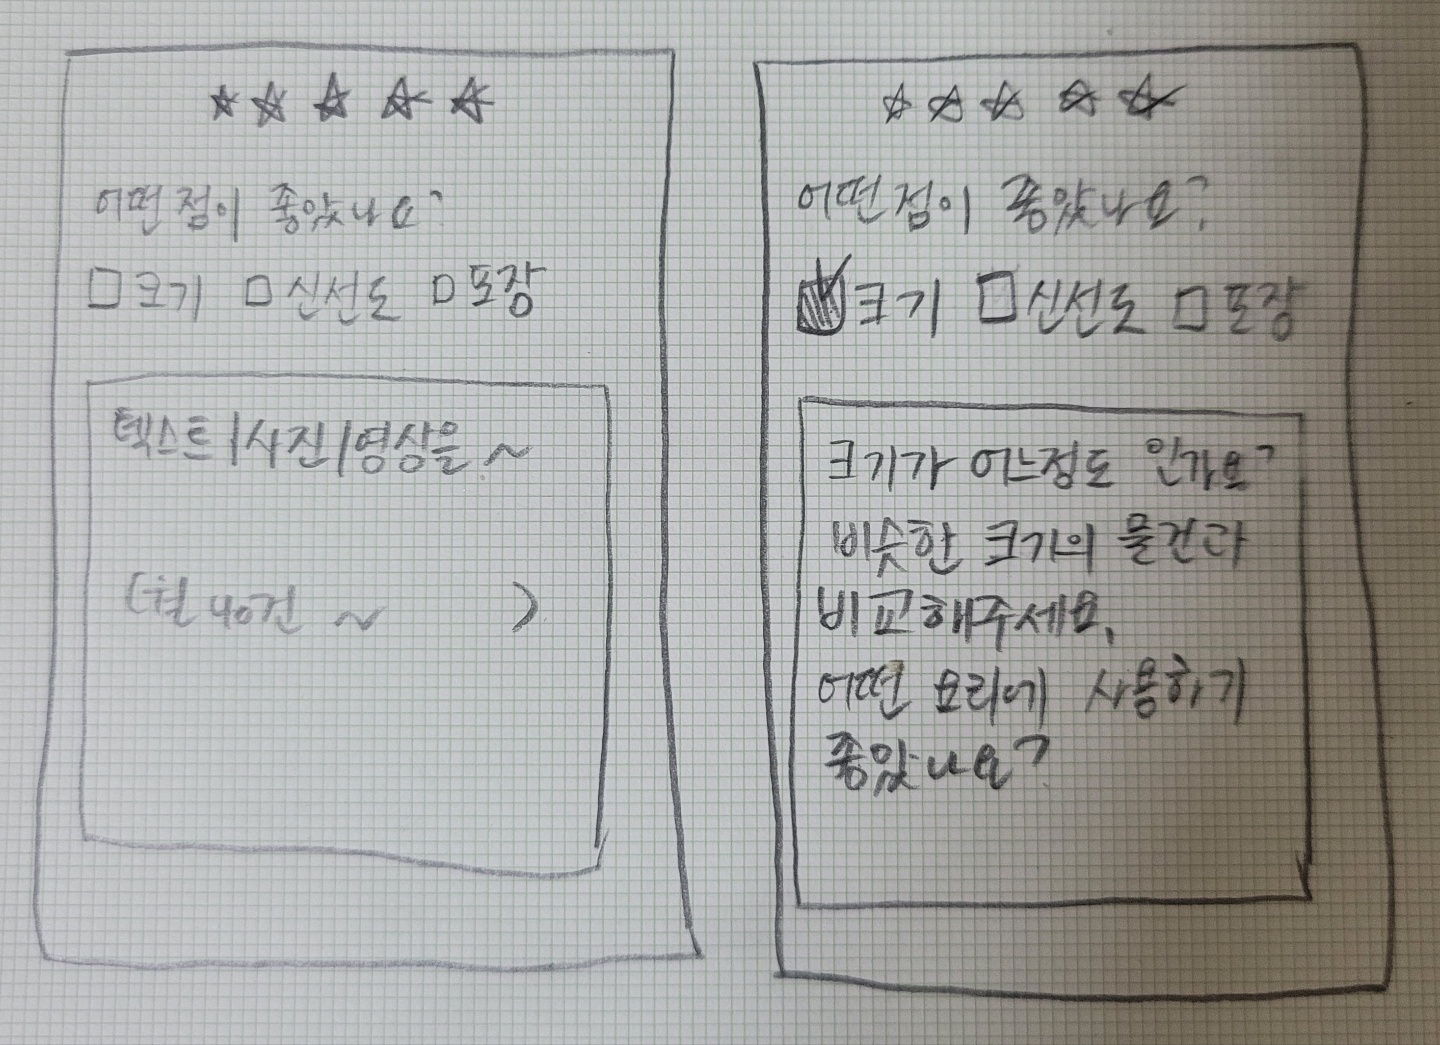 어떤 점이 좋았나요?
□크기 □신선도 □포장
텍스트/사진/영상을 ~
(월 40건 ~ )
어떤점이 좋았나요?
☑크기 □신선도 □포장
크기가 어느정도 인가요?
비슷한 크기의 물건과
비교해주세요.
어떤 요리에 사용하기
좋았나요?